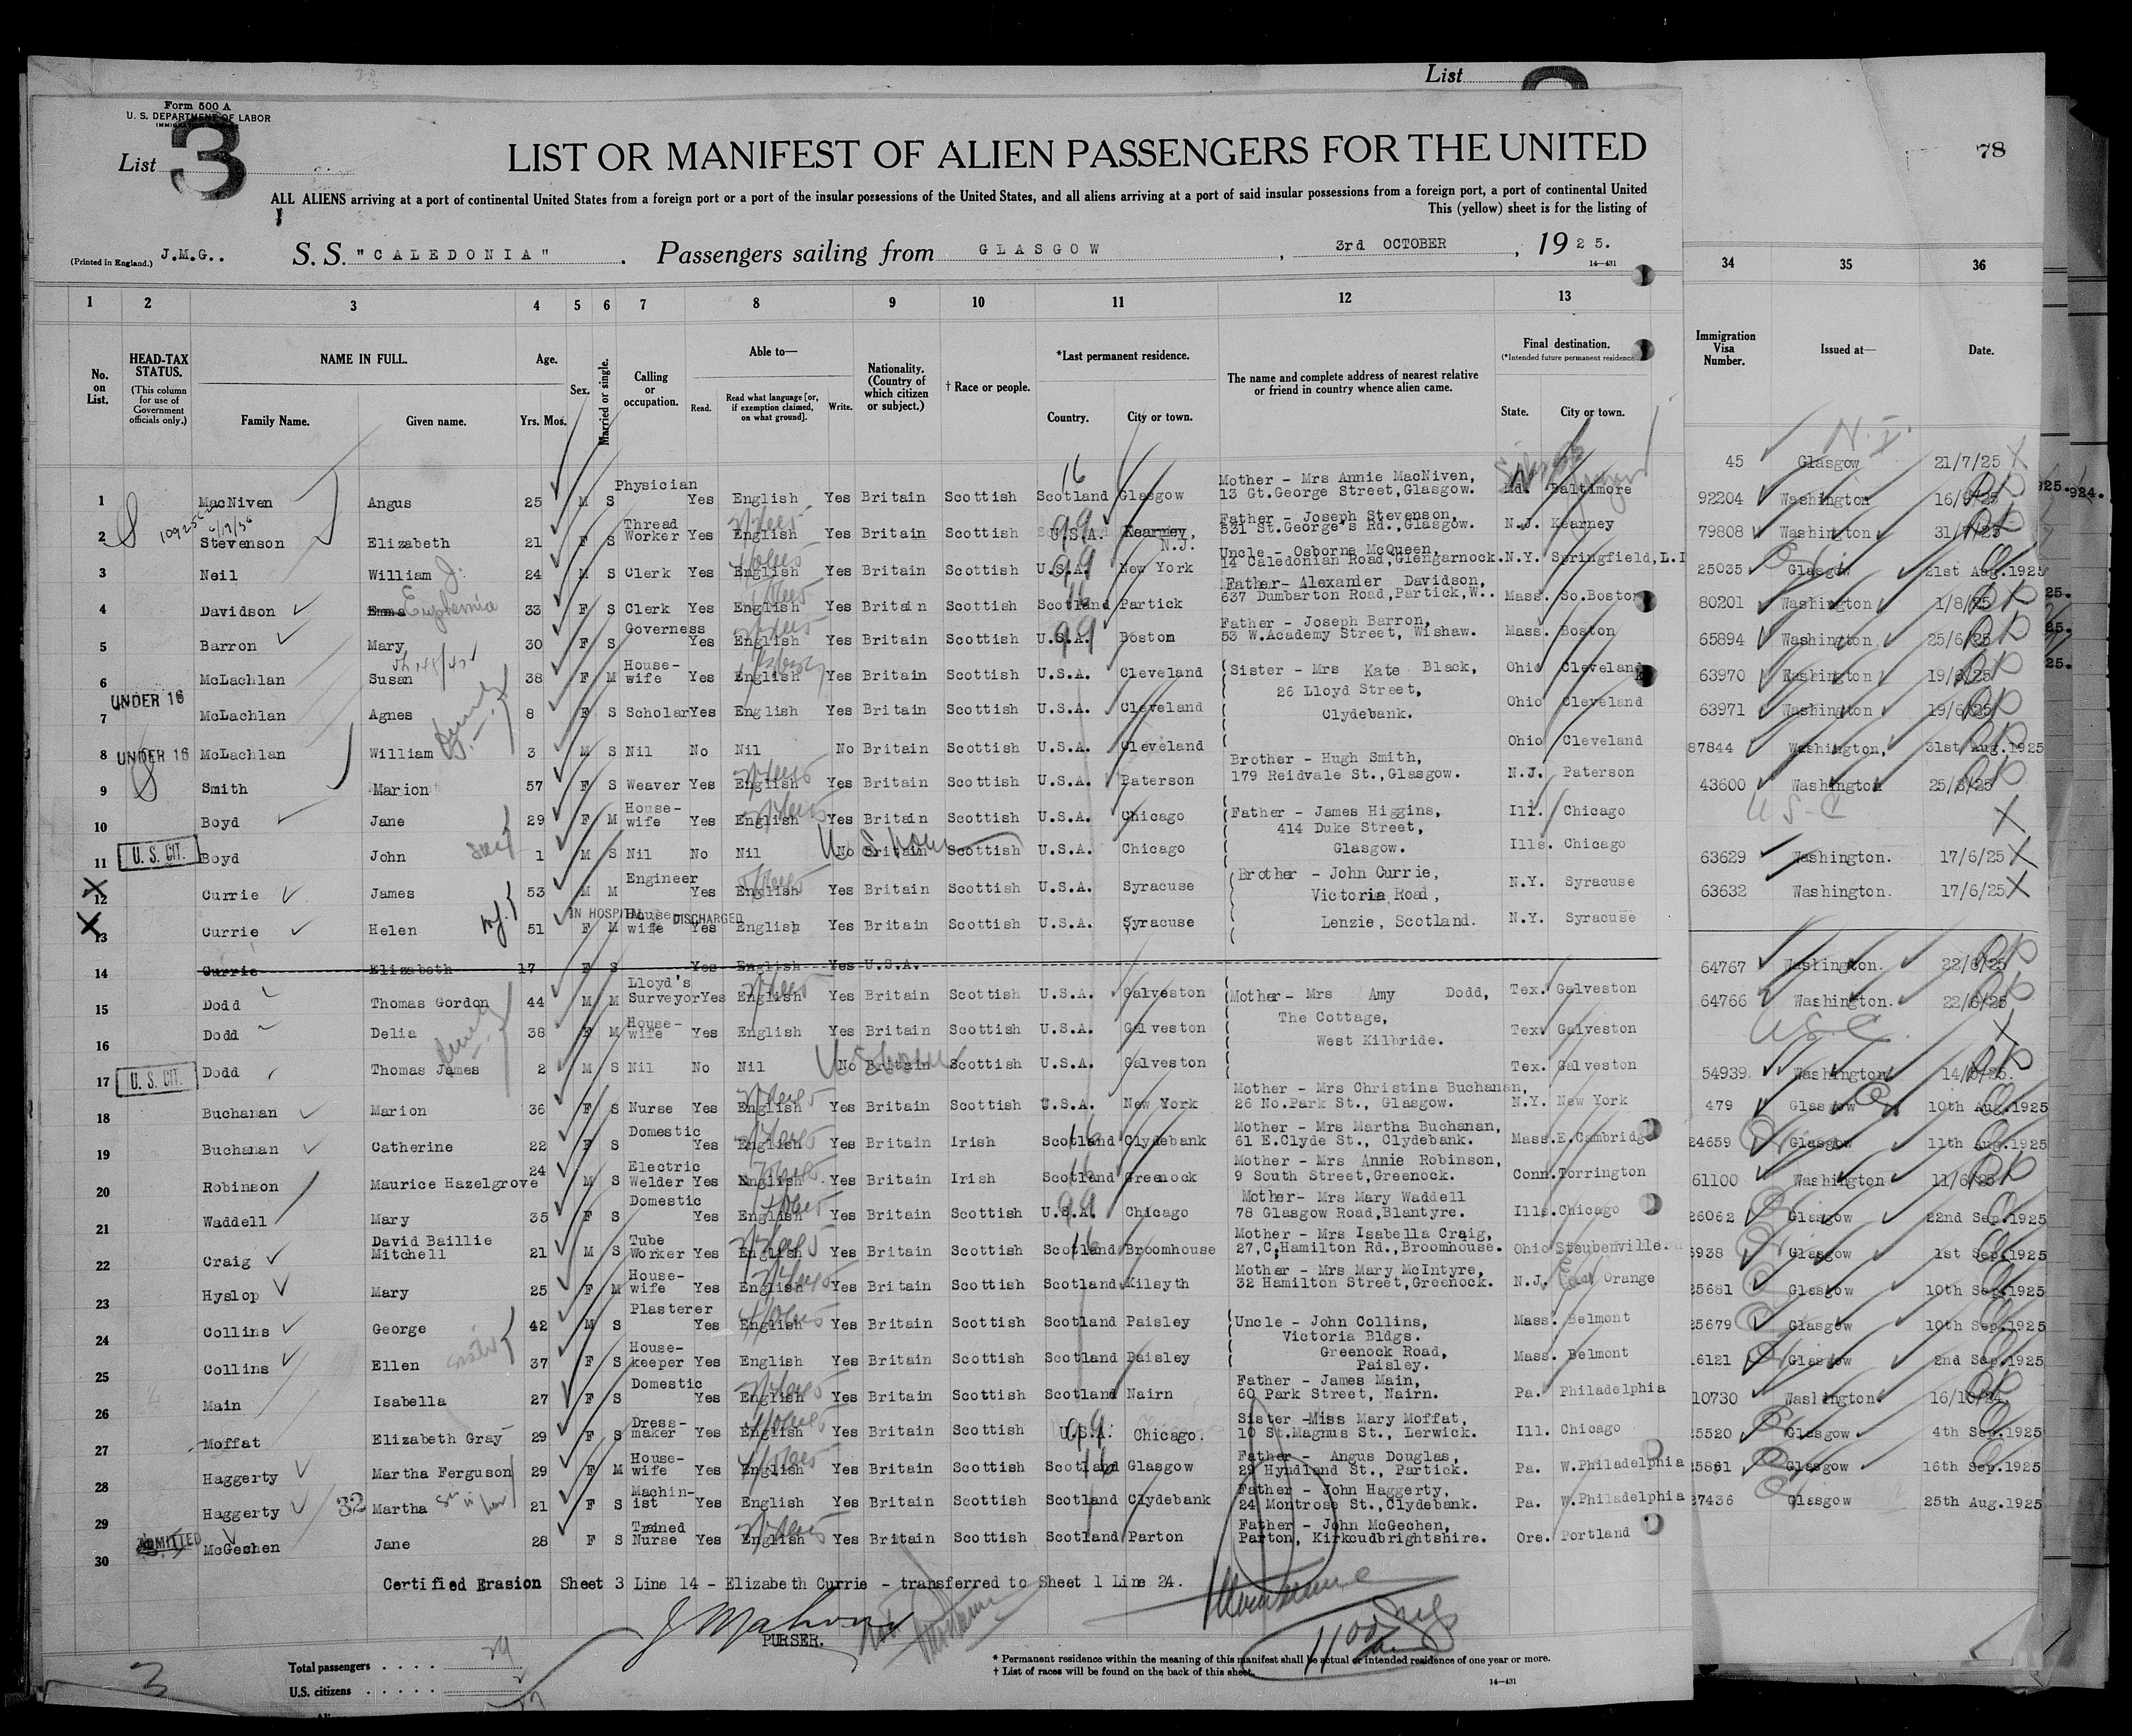 List
Form 500 A
U. S. DEPARTMENT OF LABOR
List 3
78
LIST OR MANIFEST OF ALIEN PASSENGERS FOR THE UNITED
ALL ALIENS arriving at a port of continental United States from a foreign port or a port of the insular possessions of the United States, and all aliens arriving at a port of said insular possessions from a foreign port, a port of continental United
This (yellow) sheet is for the listing of
(Printed in England.) J.M.G.. S. S. "CALEDONIA" . Passengers sailing from GLASGOW , 3rd OCTOBER , 19 25.
14—431
1 2 3 4 5 6 7 8 9 10 11 12 13 34 35 36
No. on List. HEAD-TAX STATUS. (This column for use of Government officials only.) NAME IN FULL. Family Name. Given name. Age. Yrs. Mos. Sex. Married or single. Calling or occupation. Able to— Read. Read what language [or, if exemption claimed, on what ground]. Write. Nationality. (Country of which citizen or subject.) † Race or people. *Last permanent residence. Country. City or town. The name and complete address of nearest relative or friend in country whence alien came. Final destination. (*Intended future permanent residence State. City or town. Immigration Visa Number. Issued at— Date.
N.I.
45 Glasgow 21/7/25
1 MacNiven Angus 25 M S Physician Yes English Yes Britain Scottish Scotland Glasgow Mother - Mrs Annie MacNiven, 13 Gt.George Street,Glasgow. Md. Baltimore
92204 Washington 16/9/25
2 Stevenson Elizabeth 21 F S Thread Worker Yes English Yes Britain Scottish U.S.A. Kearney, N.J. Father - Joseph Stevenson, 531 St.George's Rd.,Glasgow. N.J. Kearney
79808 Washington 31/7/25
3 Neil William J. 24 M S Clerk Yes English Yes Britain Scottish U.S.A. New York Uncle - Osborne McQueen, 14 Caledonian Road,Glengarnock. N.Y. Springfield,L.I
25035 Glasgow 21st Aug.1925
4 Davidson Emma Euphemia 33 F S Clerk Yes English Yes Britain Scottish Scotland Partick Father- Alexander Davidson, 637 Dumbarton Road,Partick,W.. Mass. So.Boston
80201 Washington 1/8/25
5 Barron Mary 30 F S Governess Yes English Yes Britain Scottish U.S.A. Boston Father - Joseph Barron, 53 W.Academy Street, Wishaw. Mass. Boston
65894 Washington 25/6/25
6 McLachlan Susan 38 F M House-wife Yes English Yes Britain Scottish U.S.A. Cleveland Sister - Mrs Kate Black, Ohio Cleveland
63970 Washington 19/6/25
26 Lloyd Street,
UNDER 16
7 McLachlan Agnes 8 F S Scholar Yes English Yes Britain Scottish U.S.A. Cleveland Clydebank. Ohio Cleveland
63971 Washington 19/6/25
8 UNDER 16 McLachlan William 3 M S Nil No Nil No Britain Scottish U.S.A. Cleveland Ohio Cleveland
87844 Washington, 31st Aug.1925
9 Smith Marion 57 F S Weaver Yes English Yes Britain Scottish U.S.A. Paterson Brother - Hugh Smith, 179 Reidvale St.,Glasgow. N.J. Paterson
43600 Washington 25/3/25
10 Boyd Jane 29 F M House-wife Yes English Yes Britain Scottish U.S.A. Chicago Father - James Higgins, 414 Duke Street, Ill. Chicago
U S C
11 U. S. CIT. Boyd John 1 M S Nil No Nil No Britain Scottish U.S.A. Chicago Glasgow. Ills. Chicago
63629 Washington. 17/6/25
12 Currie James 53 M M Engineer Yes English Yes Britain Scottish U.S.A. Syracuse Brother - John Currie, Victoria Road, N.Y. Syracuse
63632 Washington. 17/6/25
IN HOSPITAL DISCHARGED
13 Currie Helen 51 F M House-wife Yes English Yes Britain Scottish U.S.A. Syracuse Lenzie, Scotland. N.Y. Syracuse
14 Currie Elizabeth 17 F S Yes English Yes U.S.A.
64767 Washington. 22/6/25
15 Dodd Thomas Gordon 44 M M Lloyd's Surveyor Yes English Yes Britain Scottish U.S.A. Galveston Mother- Mrs Amy Dodd, Tex. Galveston
64766 Washington. 22/6/25
16 Dodd Delia 38 F M House-wife Yes English Yes Britain Scottish U.S.A. Galveston The Cottage, West Kilbride. Tex. Galveston
U S C
17 U. S. CIT. Dodd Thomas James 2 M S Nil No Nil No Britain Scottish U.S.A. Galveston Tex. Galveston
54939 Washington
18 Buchanan Marion 36 F S Nurse Yes English Yes Britain Scottish U.S.A. New York Mother - Mrs Christina Buchanan, 26 No.Park St., Glasgow. N.Y. New York
479 Glasgow 10th Aug.1925
19 Buchanan Catherine 22 F S Domestic Yes English Yes Britain Irish Scotland Clydebank Mother - Mrs Martha Buchanan, 61 E.Clyde St., Clydebank. Mass. E.Cambridge
24659 Glasgow 11th Aug.1925
20 Robinson Maurice Hazelgrove 24 M S Electric Welder Yes English Yes Britain Irish Scotland Greenock Mother - Mrs Annie Robinson, 9 South Street,Greenock. Conn. Torrington
61100 Washington 11/6/25
21 Waddell Mary 35 F S Domestic Yes English Yes Britain Scottish U.S.A. Chicago Mother- Mrs Mary Waddell 78 Glasgow Road,Blantyre. Ills. Chicago
26062 Glasgow 22nd Sep.1925
22 Craig David Baillie Mitchell 21 M S Tube Worker Yes English Yes Britain Scottish Scotland Broomhouse Mother - Mrs Isabella Craig, 27,C,Hamilton Rd.,Broomhouse. Ohio Steubenville.
6938 Glasgow 1st Sep.1925
23 Hyslop Mary 25 F M House-wife Yes English Yes Britain Scottish Scotland Kilsyth Mother - Mrs Mary McIntyre, 32 Hamilton Street,Greenock. N.J. East Orange
25681 Glasgow 10th Sep.1925
24 Collins George 42 M S Plasterer Yes English Yes Britain Scottish Scotland Paisley Uncle - John Collins, Victoria Bldgs. Mass. Belmont
25679 Glasgow 10th Sep.1925
25 Collins Ellen sister 37 F S House-keeper Yes English Yes Britain Scottish Scotland Paisley Greenock Road, Paisley. Mass. Belmont
16121 Glasgow 2nd Sep.1925
26 Main Isabella 27 F S Domestic Yes English Yes Britain Scottish Scotland Nairn Father - James Main, 60 Park Street, Nairn. Pa. Philadelphia
10730 Washington. 16/10/24
27 Moffat Elizabeth Gray 29 F S Dress-maker Yes English Yes Britain Scottish U.S.A. Chicago. Sister -Miss Mary Moffat, 10 St.Magnus St., Lerwick. Ill. Chicago
25520 Glasgow 4th Sep.1925
28 Haggerty Martha Ferguson 29 F M House-wife Yes English Yes Britain Scottish Scotland Glasgow Father - Angus Douglas, 29 Hyndland St., Partick. Pa. W.Philadelphia
25861 Glasgow 16th Sep.1925
29 Haggerty 32 Martha 21 F S Machin-ist Yes English Yes Britain Scottish Scotland Clydebank Father - John Haggerty, 24 Montrose St.,Clydebank. Pa. W.Philadelphia
27436 Glasgow 25th Aug.1925
30 ADMITTED McGechen Jane 28 F S Trained Nurse Yes English Yes Britain Scottish Scotland Parton Father - John McGechen, Parton, Kirkcudbrightshire. Ore. Portland
Certified Erasion Sheet 3 Line 14 - Elizabeth Currie - transferred to Sheet 1 Line 24.
PURSER.
3
Total passengers . . . . 29
U.S. citizens . . . . . 2
* Permanent residence within the meaning of this manifest shall be actual or intended residence of one year or more.
† List of races will be found on the back of this sheet.
14—431